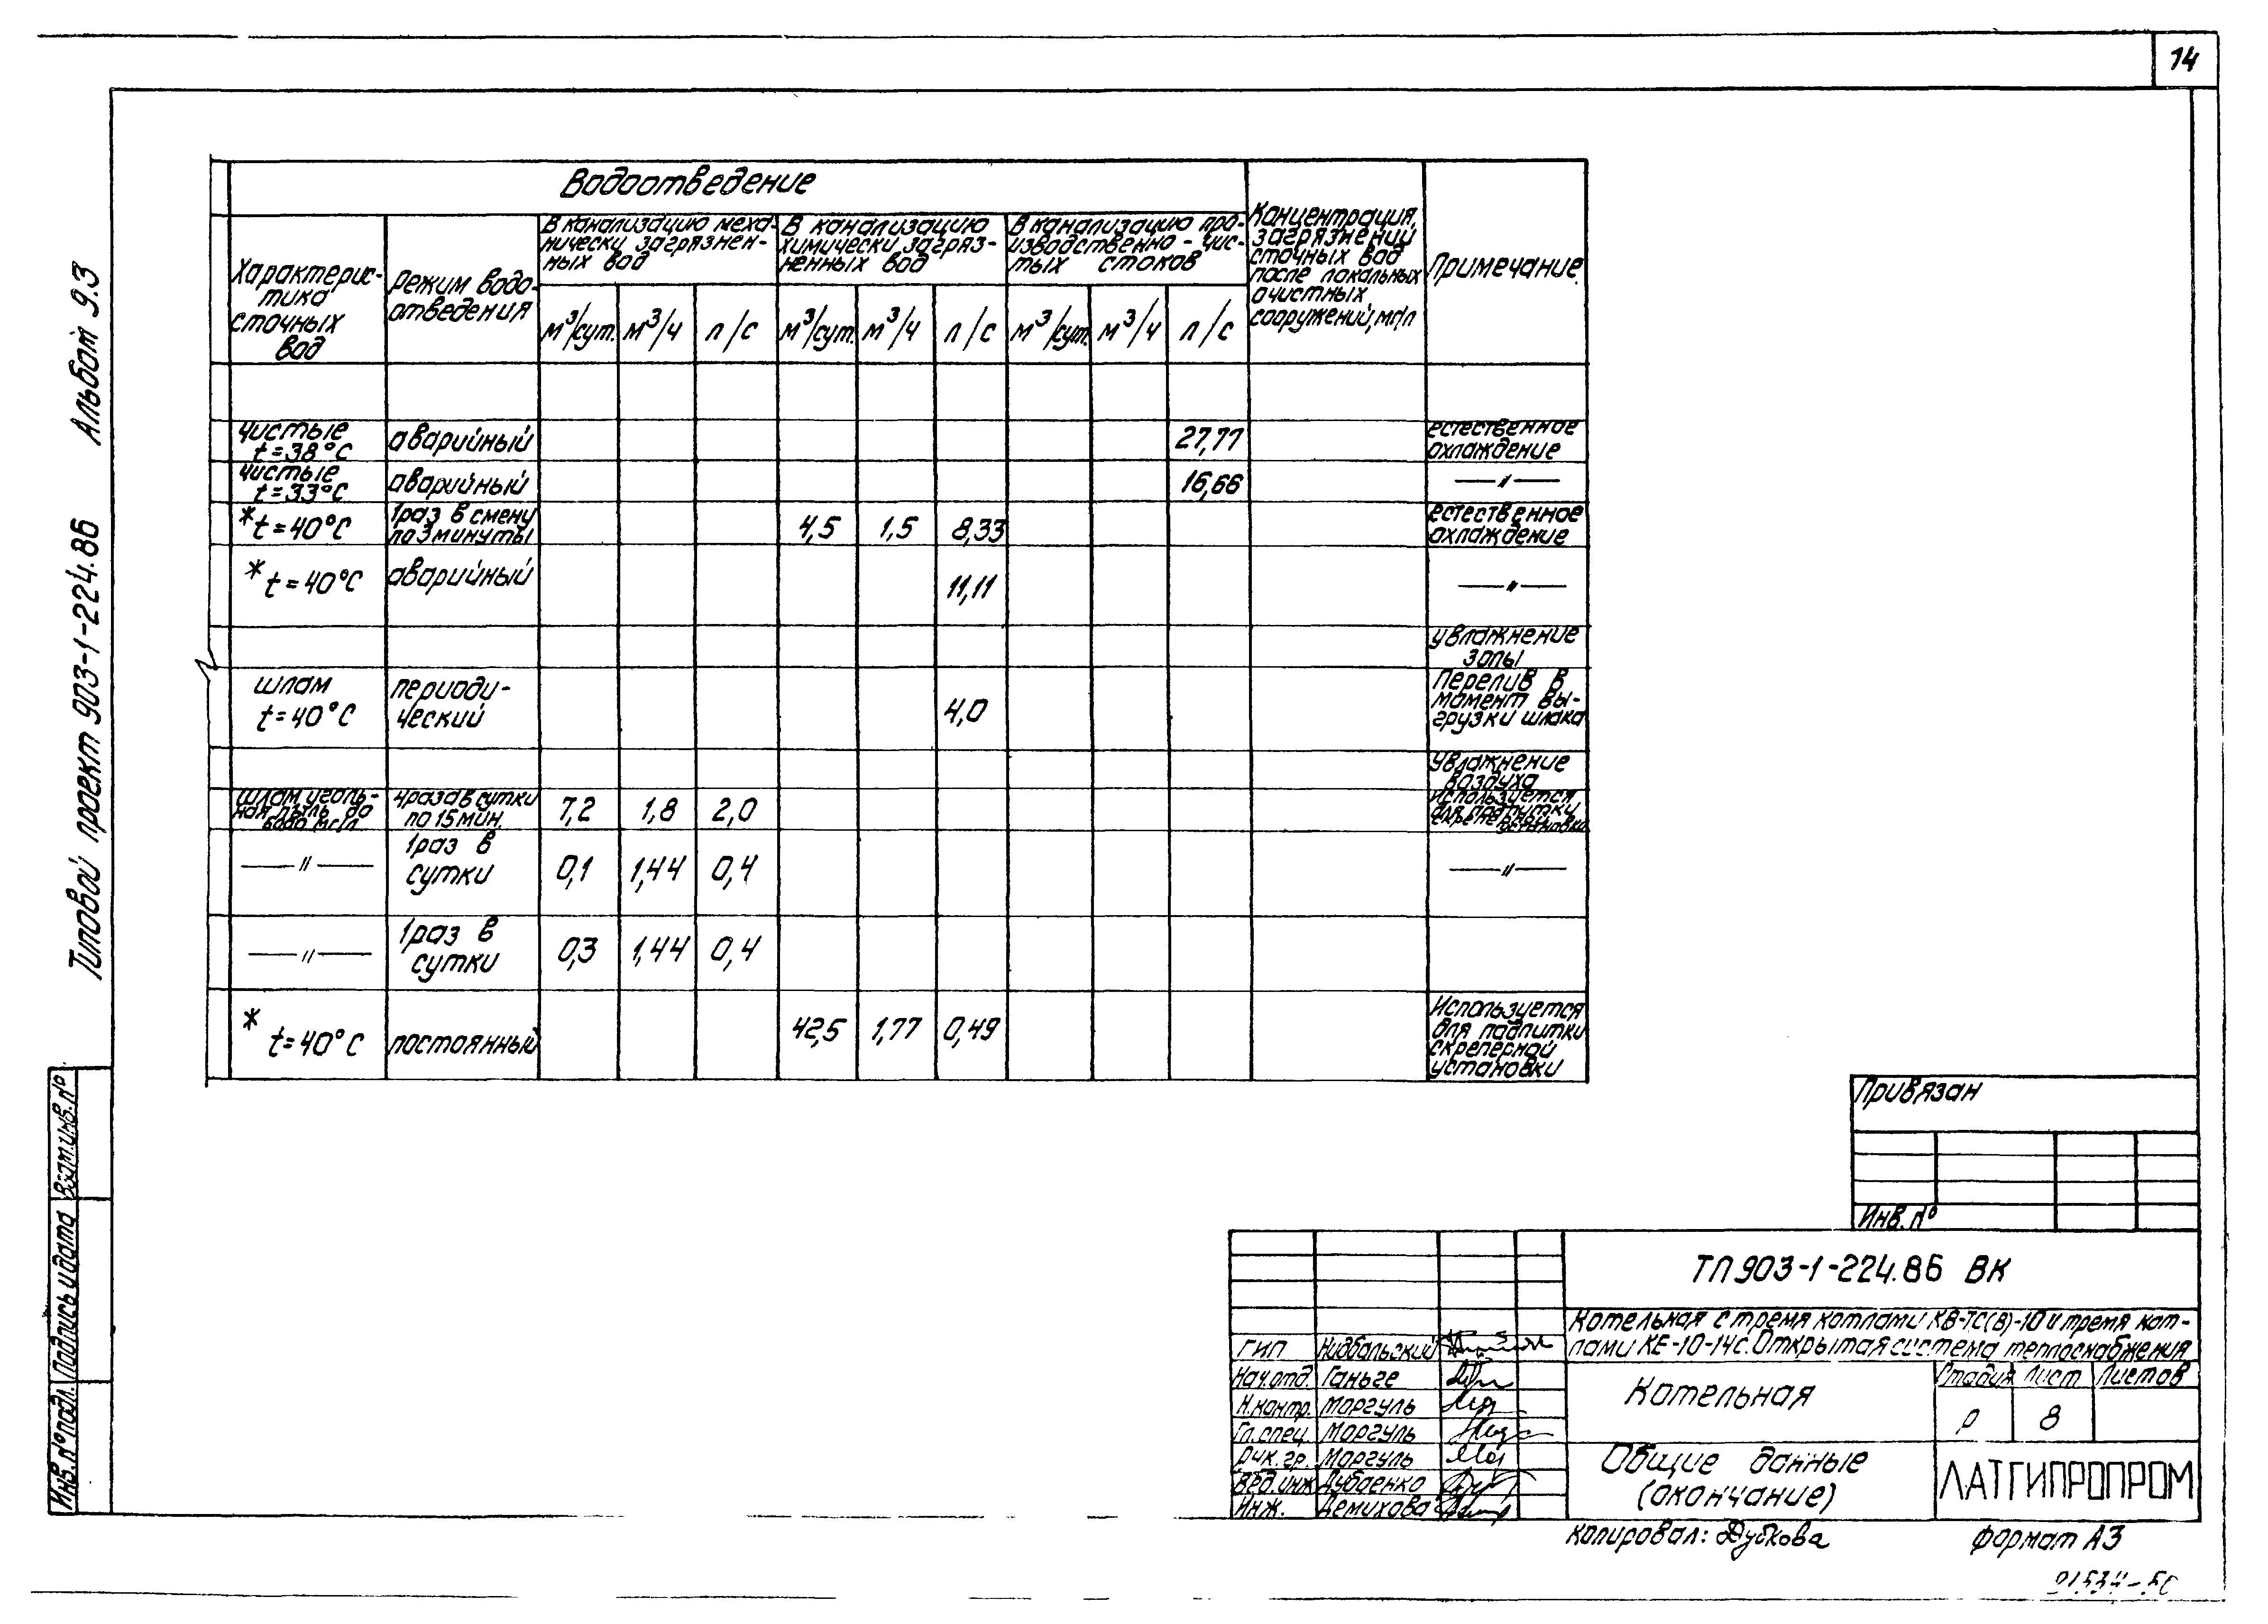 14
Типовой проект 903-1-224.86 Альбом 9.3
Водоотведение
Характерис-
тика
сточных
вод
Режим водо-
отведения
В канализацию меха-
нически загрязнен-
ных вод
В канализацию
химически загряз-
ненных вод
В канализацию про-
изводственно-чис-
тых стоков
Концентрация
загрязнений
сточных вод
после локальных
очистных
сооружений, мг/л
Примечание
м³/сут. м³/ч л/с м³/сут. м³/ч л/с м³/сут. м³/ч л/с
чистые
t=38°С
аварийный
27,77
естественное
охлаждение
чистые
t=33°С
аварийный
16,66
—〃—
* t=40°С
1раз в смену
по 3 минуты
4,5 1,5 8,33
естественное
охлаждение
* t=40°С
аварийный
11,11
—〃—
увлажнение
золы
шлам
t=40°С
периоди-
ческий
4,0
Перелив в
момент вы-
грузки шлака
Увлажнение
воздуха
шлам, уголь-
ная пыль до
4раза в сутки
по 15 мин.
7,2 1,8 2,0
Используется
для подпитки
скреперной
установки
—〃—
1раз в
сутки
0,1 1,44 0,4
—〃—
—〃—
1раз в
сутки
0,3 1,44 0,4
*
t=40°С
постоянный
42,5 1,77 0,49
Используется
для подпитки
скреперной
установки
Привязан
Инв. №
ТП 903-1-224.86 ВК
Котельная с тремя котлами КВ-ТС(В)-10 и тремя кот-
лами КЕ-10-14с. Открытая система теплоснабжения
ГИП Нидбальский
Нач.отд. Ганьге
Н.контр. Моргуль
Гл.спец. Моргуль
Рук. гр. Моргуль
Вед.инж Дубаенко
Инж. Демихова
Котельная
Стадия Лист Листов
Р 8
Общие данные
(окончание)
ЛАТГИПРОПРОМ
Копировал: Дубкова
Формат А3
Инв.№ подл. Подпись и дата Взам.инв.№